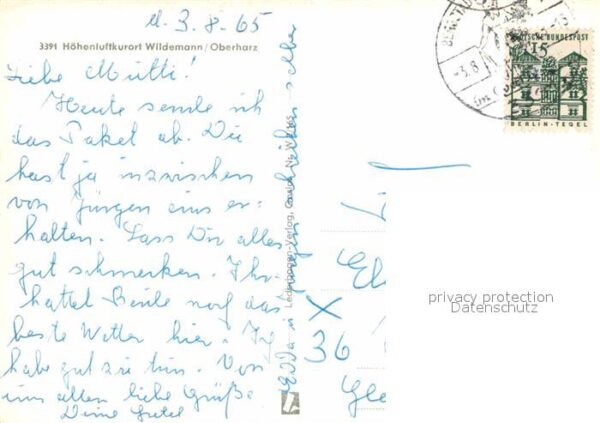 d. 3.8.65
3391 Höhenluftkurort Wildemann/Oberharz
Liebe Mutti!
Heute sende ich
das Paket ab. Du
hast ja inzwischen
von Jürgen eins er-
halten. Lass Dir alles
gut schmecken. Ihr
hattet Beide noch das
beste Wetter hier. Ich
habe gut zu tun. Von
uns allen liebe Grüße
Deine Gretel
Edda u. Jürgen schreiben selber
Verlag, Goslar
DEUTSCHE BUNDESPOST
15
BERLIN-TEGEL
-3.8
L.
X
36
privacy protection
Datenschutz